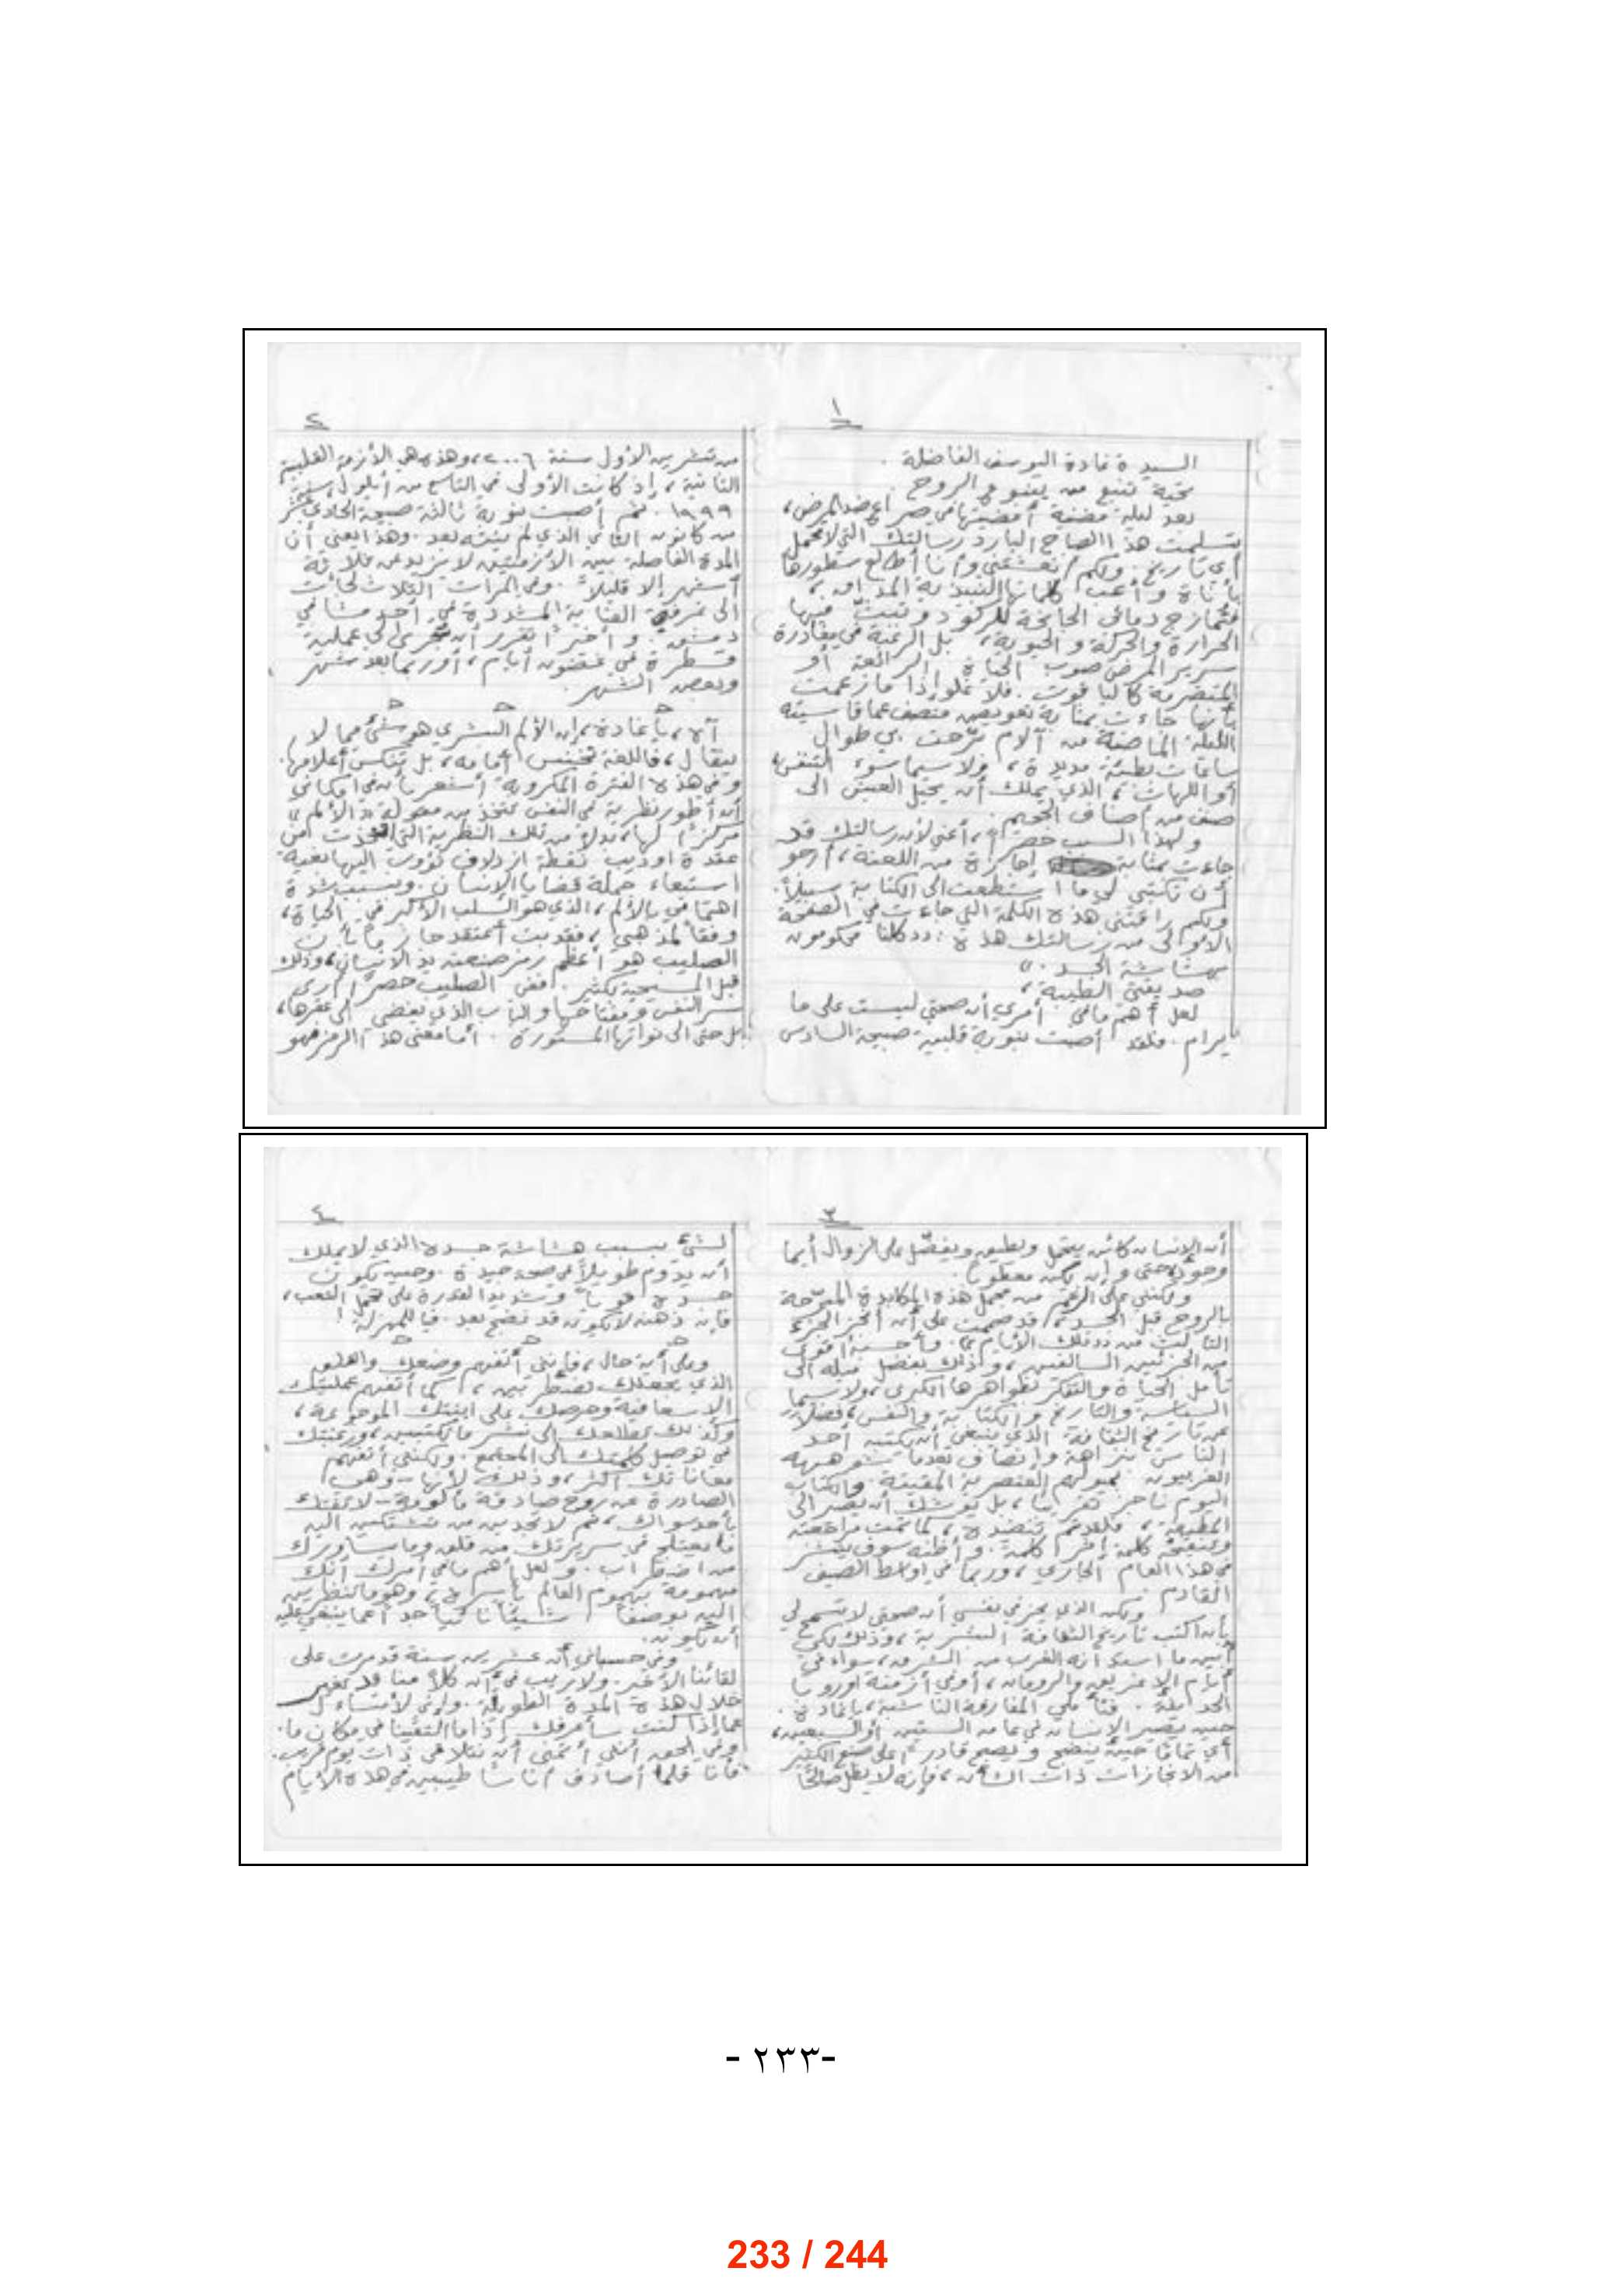 ١
السيدة غادة اليوسف الفاضلة.
تحية تنبع من ينبوع الروح
بعد ليلة مضنية أمضيتها في صراع ضد المرض،
تسلمت هذا الصباح البارد رسالتك التي لا تحمل
أي تاريخ. ولكم أنعشتني وأنا أطالع سطورها
بأناة وأعب كلماتها النبيذية المذاق،
فتمازج دمائي الجانحة للركود وتبث فيها
الحرارة والحركة والحيوية، بل الرغبة في مغادرة
سرير المرض صوب الحياة الرائعة أو
المتضرمة كالياقوت. فلا غلو إذا ما زعمت
بأنها جاءت بمثابة تعويض منصف عما قاسيته
الليلة الماضية من آلام برّحت بي طوال
ساعات بطيئة مديدة، ولا سيما سوء التنفس
أو اللهاث، الذي يملك أن يحيل العيش الى
صنف من أصناف الجحيم.
ولهذا السبب حصراً، أعني لأن رسالتك قد
جاءت بمثابة إجازة من اللعنة، أرجو
أن تكتبي لي ما استطعت الى الكتابة سبيلاً.
ولكم راقتني هذه الكلمة التي جاءت في الصفحة
الأولى من رسالتك هذه: "كلنا محكومون
بهشاشة الجسد."
صديقتي الطيبة،
لعل أهم ما في أمري أن صحتي ليست على ما
يرام. فلقد أصبت بنوبة قلبية صبيحة السادس
٢
من تشرين الأول سنة ٢٠٠٦، وهذه هي الأزمة القلبية
الثانية، إذ كانت الأولى في التاسع من أيلول سنة
١٩٩٩. ثم أصبت بنوبة ثالثة صبيحة الحادي عشر
من كانون الثاني الذي لم ينته بعد. وهذا يعني أن
المدة الفاصلة بين الأزمتين لا تزيد عن ثلاثة
أشهر إلا قليلاً. وفي المرات الثلاث لجأت
الى غرفة العناية المشددة في أحد مشافي
دمشق. وأخيراً تقرر أن تجرى لي عملية
قسطرة في غضون أيام، أو ربما بعد شهر
وبعض الشهر.
آه، يا غادة، إن الألم البشري هو شيء مما لا
يقال، فاللغة تخنس أمامه، بل تنكس أعلامها.
وفي هذه الفترة المكروبة أستشعر بأن في إمكاني
أن أطور نظرية في النفس تتخذ من مقولة "الألم"
مركزاً لها، بدلاً من تلك النظرية التي اتخذت من
عقدة اوديب نقطة ازدلاف تؤوب اليها بغية
استيعاء جملة قضايا الإنسان. وبسبب شدة
اهتمامي بالألم، الذي هو السلب الأكبر في الحياة،
وفقاً لمذهبي، فقد بت أعتقد جازماً بأن
الصليب هو أعظم رمز صنعته يد الانسان، وذلك
قبل المسيحية بكثير. ففي الصليب حصراً أرى
سر النفس ومفتاحها والباب الذي يفضي الى عقرها،
بل حتى الى نواتها المستورة. أما معنى هذا الرمز فهو
٣
أن الإنسان كائن يتحمل ويطيق ويفضّل على الزوال أيما
وجود، حتى وإن يكن معطوباً.
ولكنني على الرغم من مجمل هذه المكابدة المبرّحة
بالروح قبل الجسد، قد صممت على أن أنجز الجزء
الثالث من "تلك الأيام". وأحسبه أقوى
من الجزئين السالفين، وذلك بفضل ميله الى
تأمل الحياة والتفكر بظواهرها الكبرى، ولا سيما
السياسة والتاريخ والكتابة والنفس، فضلاً
عن تاريخ الثقافة الذي ينبغي أن يكتبه أحد
الناس بنزاهة وإنصاف بعدما شوهه
الغربيون بميولهم العنصرية المقيتة. والكتاب
اليوم ناجز تقريباً، بل يوشك أن يصير الى
المطبعة، فلقد تم تنضيده، كما تمت مراجعته
وتنقيحه كلمة إثر كلمة. وأظنه سوف ينشر
في هذا العام الجاري، وربما في اواسط الصيف
القادم.
ولكن الذي يحز في نفسي أن صحتي لا تسمح لي
بأن أكتب تاريخ الثقافة البشرية، وذلك لكي
أبين ما استعاره الغرب من الشرق، سواء في
أيام الإغريق والرومان، أو في أزمنة اوروبا
الحديثة. فتأملي المفارقة الناشبة، يا غادة.
حين يصير الإنسان في عامه الستين أو السبعين،
أي تماماً حين ينضج ويصبح قادراً على صنع الكثير
من الانجازات ذات الشأن، فإنه لا يظل صالحاً
٤
لشيء بسبب هشاشة جسده الذي لا يملك
أن يدوم طويلاً في صحة جيدة. وحين يكون
جسده قوياً وشديد القدرة على تحمل التعب،
فإن ذهنه لا يكون قد نضج بعد. فيا للمهزلة!
وعلى أية حال، فإنني أتفهم وضعك والقلق
الذي يجعلك تضطربين، كما أتفهم عمليتك
الاسعافية وحرصك على ابنتك الموجوعة،
وكذلك تطلعك الى نشر ما تكتبين، ورغبتك
في توصيل كلمتك الى المجتمع. ولكنني أتفهم
معاناتك أكثر، وذلك لأنها - وهي
الصادرة عن روح صادقة مألومة - لا تثق
بأحد سواك، ثم لا تجدين من تشتكين اليه
ما يعتلج في سريرتك من قلق وما ساورك
من اضطراب. ولعل أهم ما في أمرك أنك
مهمومة بهموم العالم بأسره، وهو ما تنظرين
اليه بوصفه شيئاً نائياً جداً عما ينبغي عليه
أن يكون.
وفي حسباني أن عشرين سنة قد مرت على
لقائنا الأخير. ولا ريب في أن كلاً منا قد تغير
خلال هذه المدة الطويلة. وإني لأتساءل
عما إذا كنت سأعرفك إذا ما التقينا في مكان ما.
وفي الحق أنني أتمنى أن نتلاقى ذات يوم قريب.
فأنا قلما أصادف أناساً طيبين في هذه الأيام
- ٢٣٣-
233 / 244